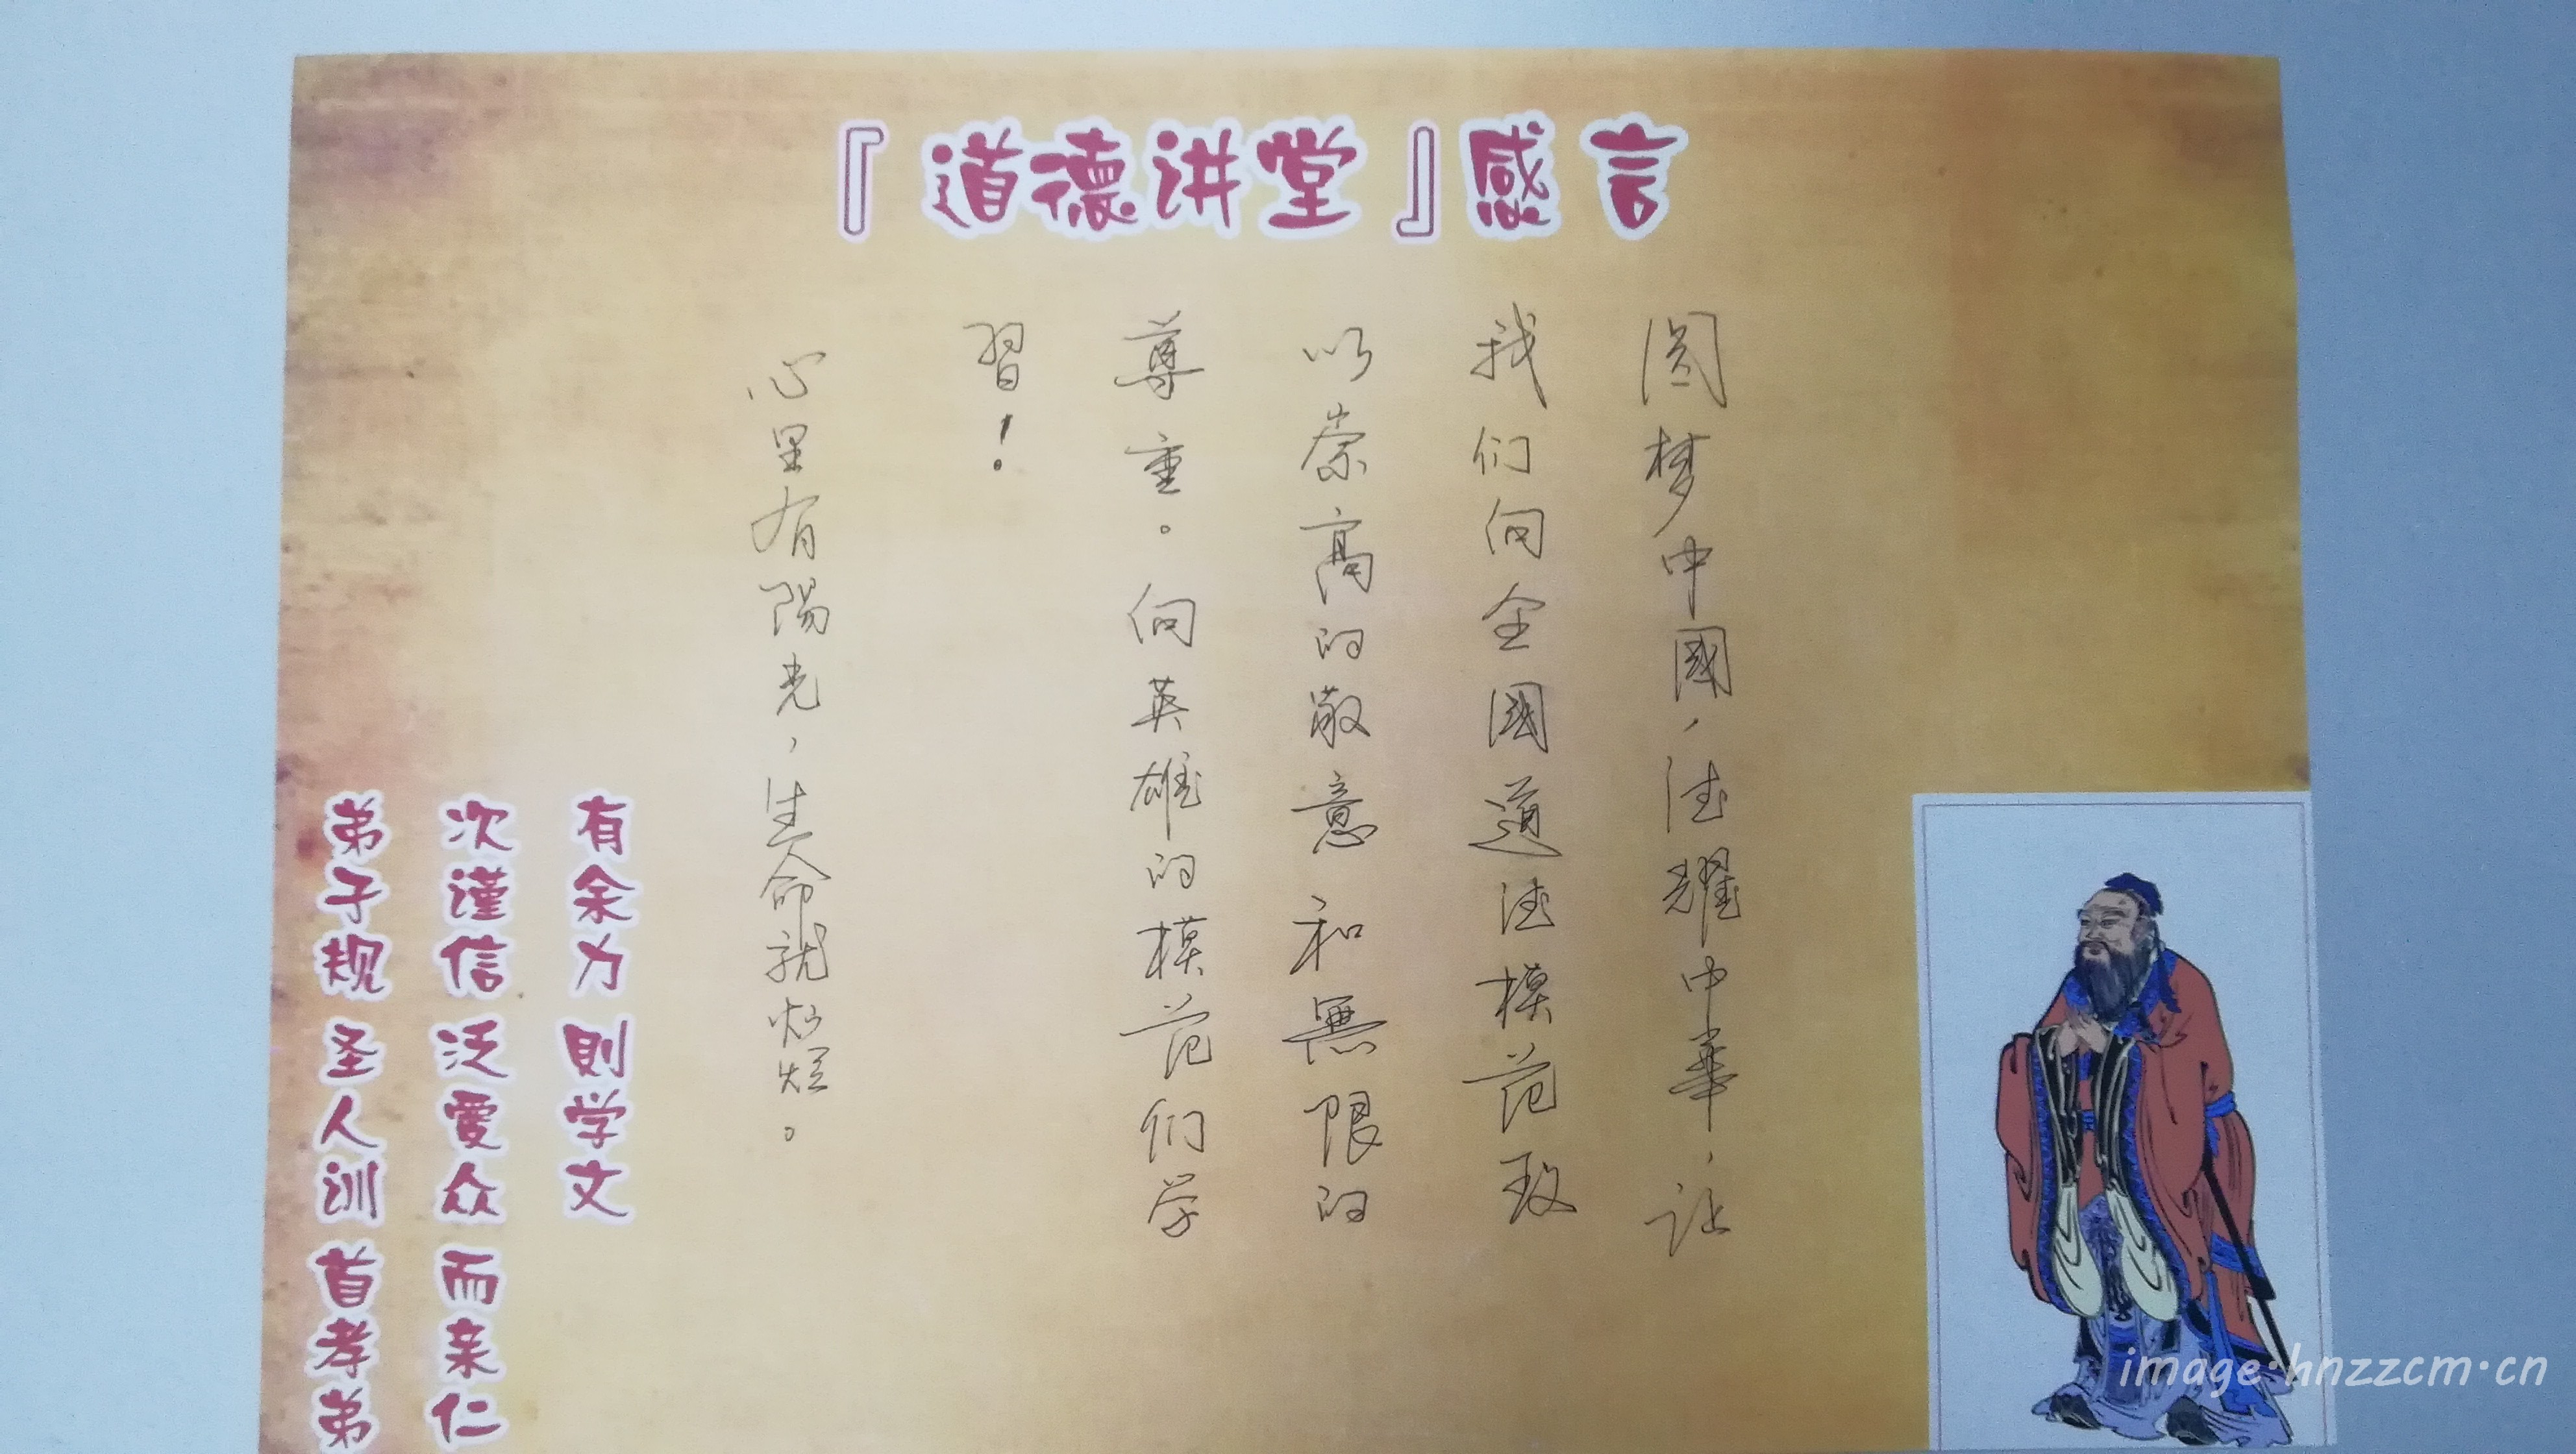 『道德讲堂』感言
圆梦中國，德耀中華，让
我们向全國道德模范致
以崇高的敬意和無限的
尊重。向英雄的模范们学
習！
心里有陽光，生命就灿烂。
有余力 则学文
次谨信 泛爱众 而亲仁
弟子规 圣人训 首孝弟
image.hnzzcm.cn